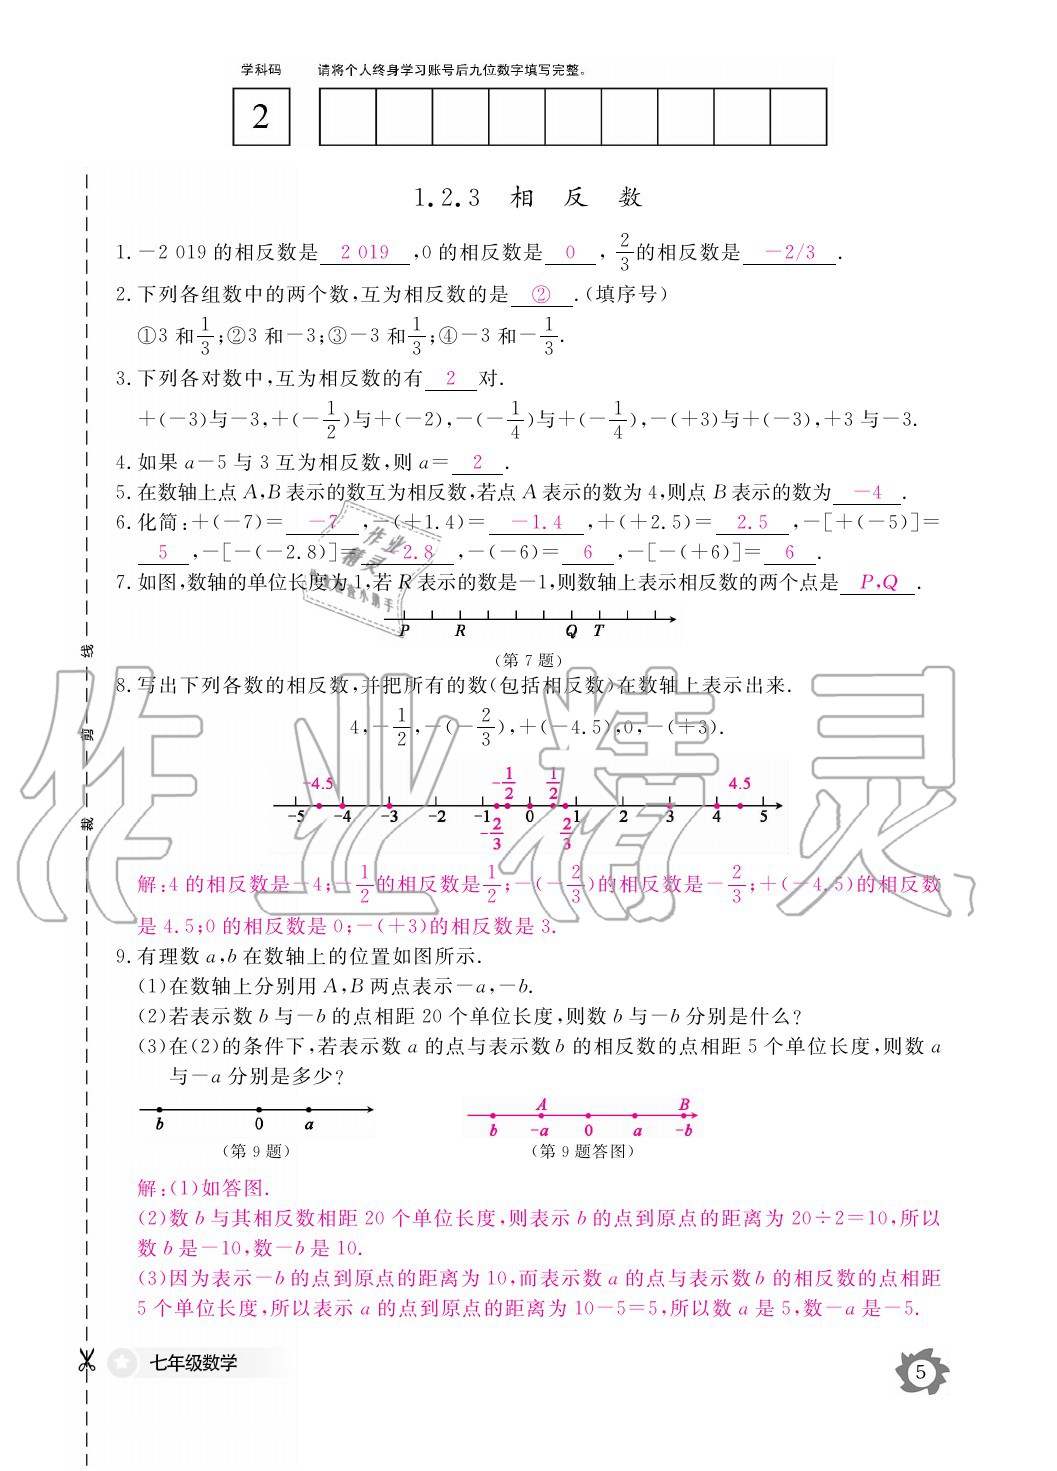 学科码 请将个人终身学习账号后九位数字填写完整。
2
1.2.3 相 反 数
1.-2 019 的相反数是 2 019 ,0 的相反数是 0 , 2/3 的相反数是 -2/3 .
2.下列各组数中的两个数,互为相反数的是 ② .(填序号)
①3 和 1/3;②3 和-3;③-3 和 1/3;④-3 和- 1/3.
3.下列各对数中,互为相反数的有 2 对.
+(-3)与-3,+(- 1/2)与+(-2),-(- 1/4)与+(- 1/4),-(+3)与+(-3),+3 与-3.
4.如果 a-5 与 3 互为相反数,则 a= 2 .
5.在数轴上点 A,B 表示的数互为相反数,若点 A 表示的数为 4,则点 B 表示的数为 -4 .
6.化简:+(-7)= -7 ,-(+1.4)= -1.4 ,+(+2.5)= 2.5 ,-[+(-5)]=
5 ,-[-(-2.8)]= -2.8 ,-(-6)= 6 ,-[-(+6)]= 6 .
7.如图,数轴的单位长度为 1,若 R 表示的数是-1,则数轴上表示相反数的两个点是 P,Q .
P R Q T
(第 7 题)
8.写出下列各数的相反数,并把所有的数(包括相反数)在数轴上表示出来.
4,- 1/2,-(- 2/3),+(-4.5),0,-(+3).
-4.5 -1/2 1/2 4.5
-5 -4 -3 -2 -1 0 1 2 3 4 5
-2/3 2/3
解:4 的相反数是-4;- 1/2的相反数是 1/2;-(- 2/3)的相反数是- 2/3;+(-4.5)的相反数
是 4.5;0 的相反数是 0;-(+3)的相反数是 3.
9.有理数 a,b 在数轴上的位置如图所示.
(1)在数轴上分别用 A,B 两点表示-a,-b.
(2)若表示数 b 与-b 的点相距 20 个单位长度,则数 b 与-b 分别是什么?
(3)在(2)的条件下,若表示数 a 的点与表示数 b 的相反数的点相距 5 个单位长度,则数 a
与-a 分别是多少?
A B
b 0 a b -a 0 a -b
(第 9 题) (第 9 题答图)
解:(1)如答图.
(2)数 b 与其相反数相距 20 个单位长度,则表示 b 的点到原点的距离为 20÷2=10,所以
数 b 是-10,数-b 是 10.
(3)因为表示-b 的点到原点的距离为 10,而表示数 a 的点与表示数 b 的相反数的点相距
5 个单位长度,所以表示 a 的点到原点的距离为 10-5=5,所以数 a 是 5,数-a 是-5.
线
剪
裁
作业精灵
作业
精灵
七年级数学
5